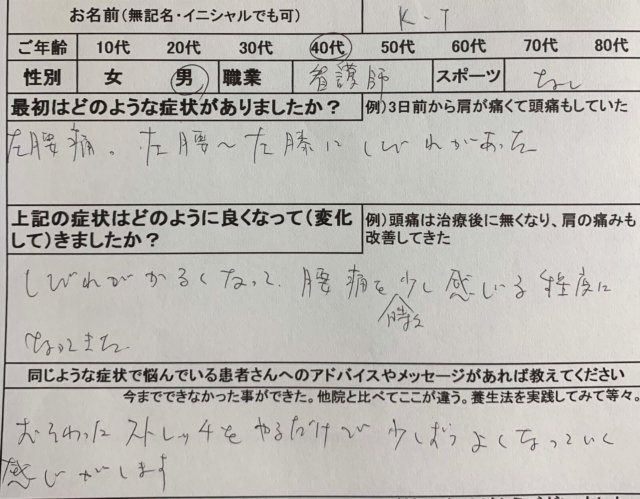 お名前(無記名・イニシャルでも可) K-T
ご年齢 10代 20代 30代 40代 50代 60代 70代 80代
性別 女 男 職業 看護師 スポーツ なし
最初はどのような症状がありましたか? 例)3日前から肩が痛くて頭痛もしていた
左腰痛。左腰〜左膝にしびれがあった
上記の症状はどのように良くなって(変化 例)頭痛は治療後に無くなり、肩の痛みも
して)きましたか? 改善してきた
しびれがかるくなって、腰痛を少し感じる程度に
時々
なってきた
同じような症状で悩んでいる患者さんへのアドバイスやメッセージがあれば教えてください
今までできなかった事ができた。他院と比べてここが違う。養生法を実践してみて等々。
おそわったストレッチをやるだけで少しずつよくなっていく
感じがします